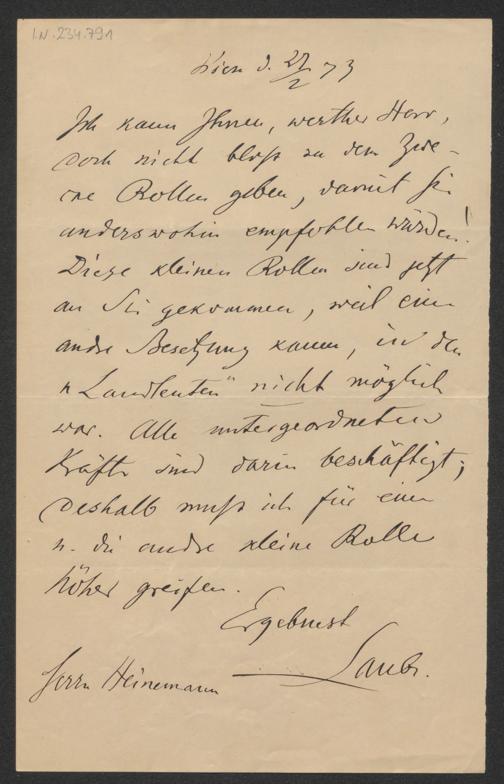 I.N. 234.791
Wien d. 27/2 73
Ich kann Ihnen, werther Herr,
doch nicht bloß zu dem Zwe-
cke Rollen geben, damit Sie
anderswohin empfohlen würden!
Diese kleinen Rollen sind jetzt
an Sie gekommen, weil eine
andre Besetzung kaum, in den
"Landleuten" nicht möglich
war. Alle untergeordneten
Kräfte sind darin beschäftigt;
deshalb muß ich für eine
u. die andre kleine Rolle
höher greifen.
Ergebenst
Laube.
Herrn Heinemann